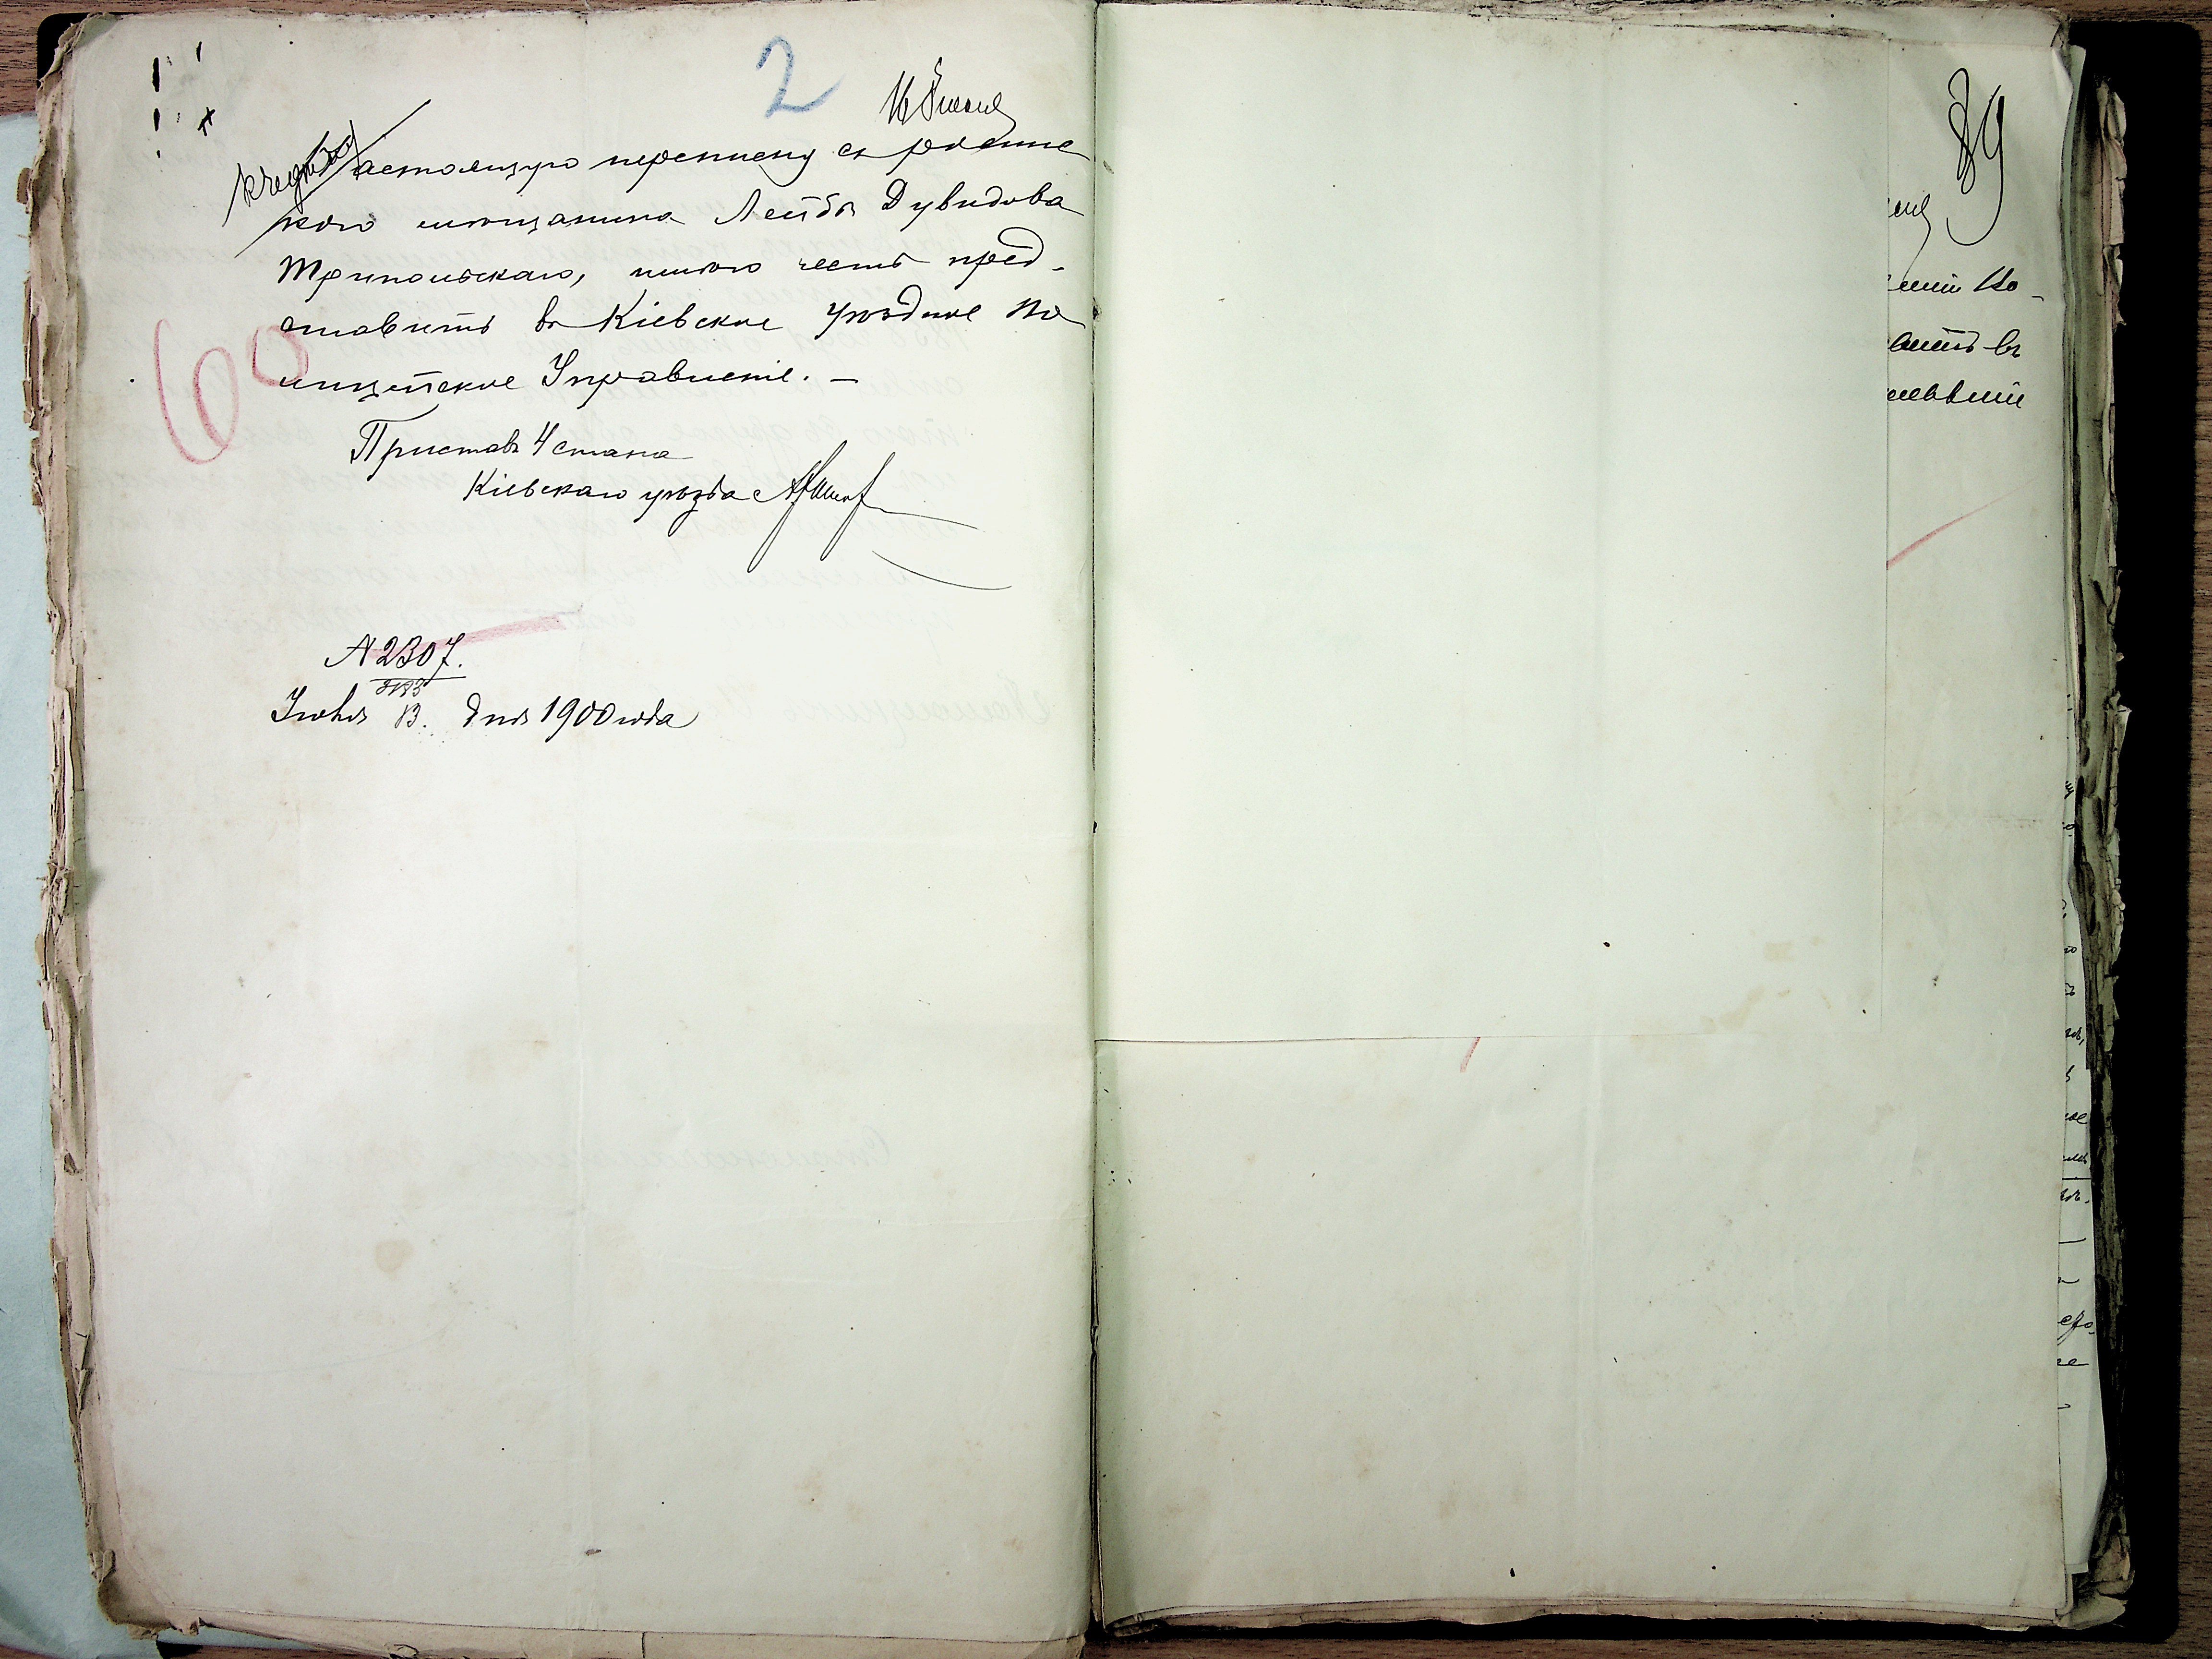 2
Настоящую переписку съ росписке
кого мѣщанина Лейбы Дувидова
Трипольскаго, имѣю честь пред-
ставить въ Кіевское уѣздное По
лицейское Управленіе. —
60
Приставъ 4 стана
Кіевскаго уѣзда
№ 2307.
Іюля 13. дня 1900 года
89